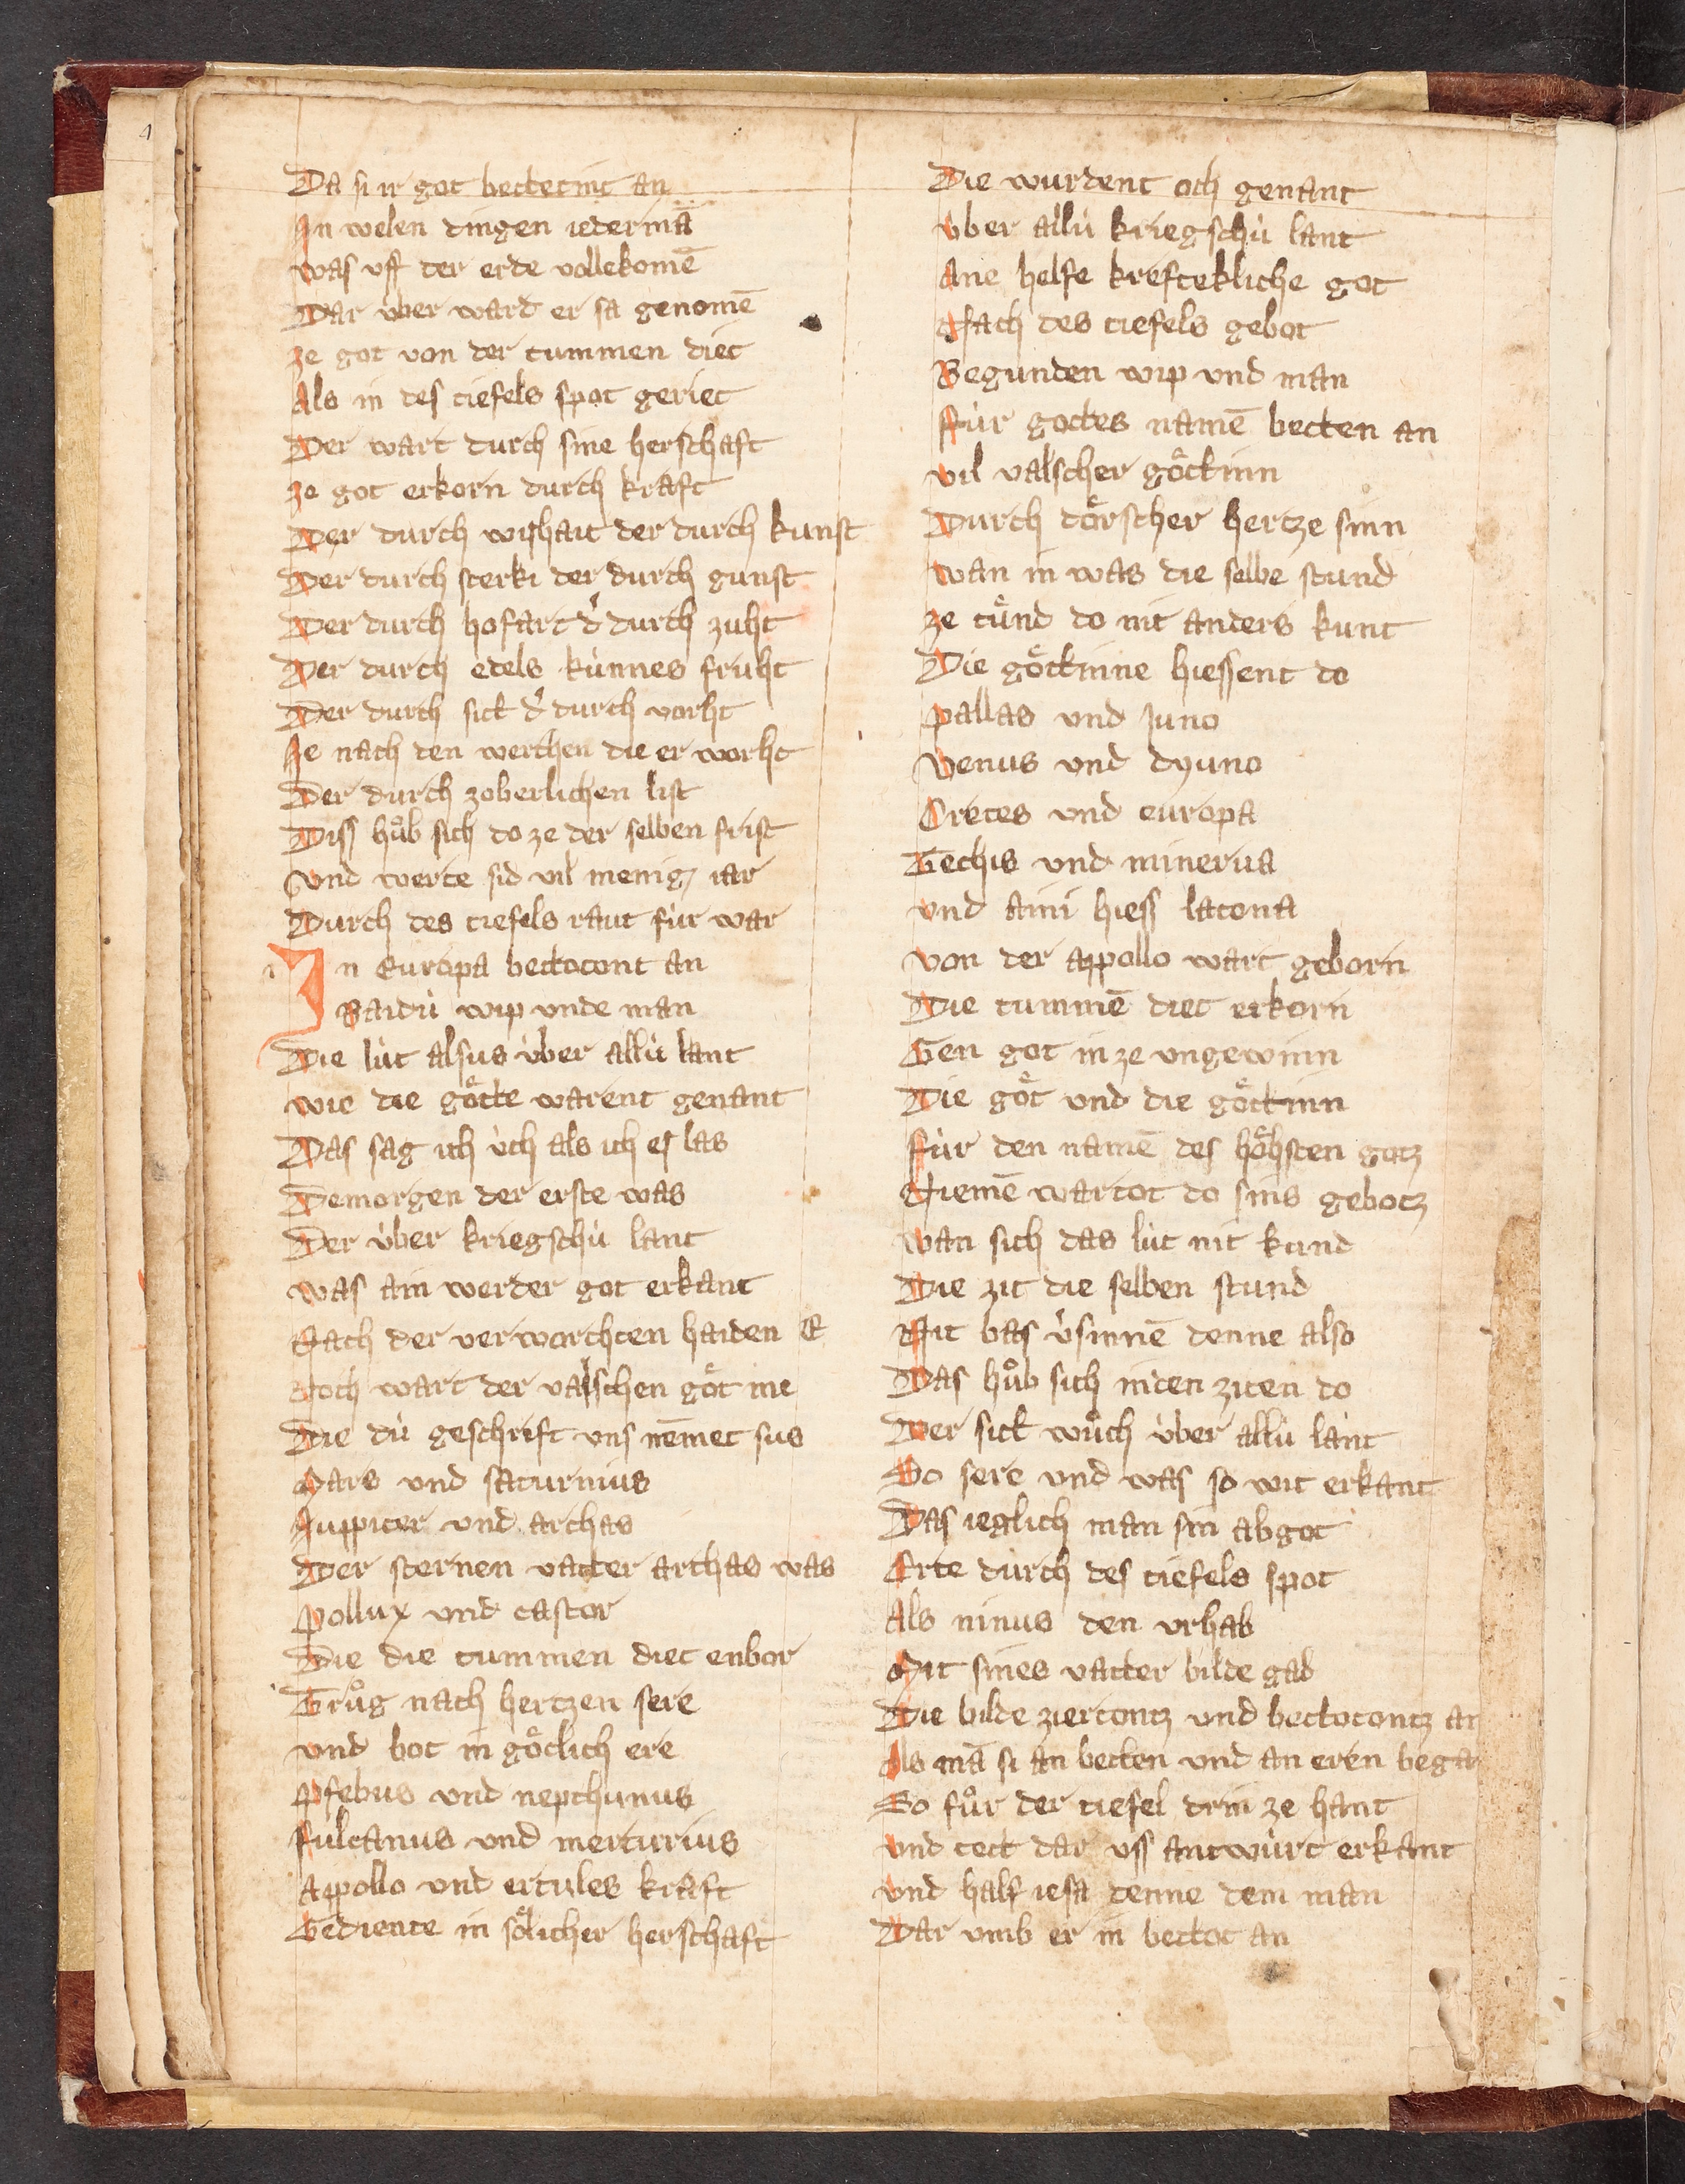 Da si ir got bettetint an
In welen dingen iedermā
was vff der erde vollekomē
Dar über ward er sa genomē
ze got von der tummen diet
Als in des tiefels spot geriet
Der wart durch sine herschaft
ze got erkorn durch kraft
Der durch wishait der durch kunst
Der durch sterki der durch gunst
Der durch hofart d' durch zuht
Der durch edels künnes fruht
Der durch sick d' durch vorht
Ie nach den werchen die er worht
Der durch zoberlichen list
Diss hůb sich do ze der selben frist
Vnd werte sid vil menig iar
Durch des tiefels raut für war
In Europa bettotont an
Baidü wip vnde man
Die lüt alsus über allü lant
wie die gőtte warent genant
Das sag ich üch als ich es las
Demorgen der erste was
Der über kriegschü lant
was ain werder got erkant
Nach der verworchten haiden E
Noch wart der valschen gőt me
Die dü geschrift vns nēmet sus
Mars vnd saturnius
Juppiter vnd archas
Der sternen vatter archas was
Pollux vnd castor
Die die tummen diet enbor
Trůg nach hertzen sere
vnd bot in gőtlich ere
Pfebus vnd nepthunus
fulcanus vnd mercurius
Appollo vnd ercules kraft
Gediente in sőlicher herschaft
Die wurdent och genant
vber allü kriegschü lant
Ane helfe kreftekliche got
Nach des tiefels gebot
Begunden wip vnd man
für gottes namē betten an
vil valscher gőttinn
Durch tőrscher hertze sinn
wan in was die selbe stund
ze tůnd do nit anders kunt
Die gőttinne hiessent do
Pallas vnd Juno
Venus vnd dyuno
Cretes vnd europa
Techis vnd minerua
vnd aini hiess latona
von der appollo wart geborn
Die tummē diet erkorn
Gen got in ze vngewinn
Die gőt vnd die gőttinn
für den namē des hőhsten gotz
Niemē wartot do sins gebotz
wan sich das lüt nit kund
Die zit die selben stund
Nit bas v'sinnē denne also
Das hůb sich inden ziten do
Der sick wůch über allü lant
So sere vnd was so wit erkant
Das ieglich man sin abgot
Erte durch des tiefels spot
Als ninus den vrhab
Mit sines vatter bilde gab
Die bilde ziertontz vnd bettotontz an
Als mā si an betten vnd an eren began
So fůr der tiefel drin ze hant
vnd tett dar vss antwürt erkant
vnd half iesa denne dem man
Dar vmb er in bettot an